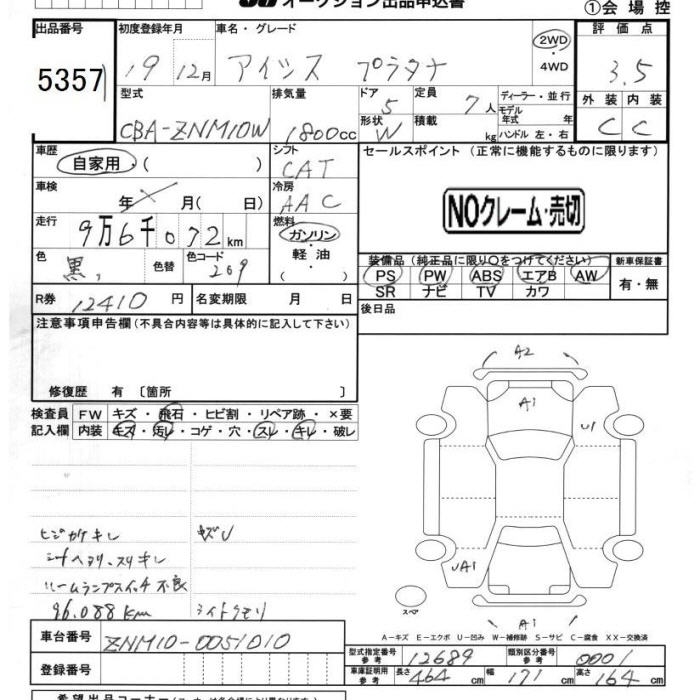 オークション出品申込書
①会場控
出品番号 初度登録年月 車名・グレード 2WD・4WD 評価点
5357 19 12月 アイシス プラタナ 3.5
型式 排気量 ドア 5 定員 7人 ディーラー・並行 外装 内装
CBA-ZNM10W 1800cc 形状 W 積載 kg モデル年式 年 ハンドル 左・右 C C
車歴 自家用・( ) シフト CAT セールスポイント (正常に機能するものに限ります)
車検 年 月( 日) 冷房 AAC
NOクレーム・売切
走行 9万6千072km 燃料 ガソリン・軽油・
色 黒 色替 色コード 209
装備品 (純正品に限り○をつけてください) 新車保証書
PS PW ABS エアB AW 有・無
SR ナビ TV カワ
R券 12410円 名変期限 月 日 後日品
注意事項申告欄 (不具合内容等は具体的に記入して下さい)
修復歴 有 〔箇所 〕
検査員 FW キズ・飛石・ヒビ割・リペア跡・×要
記入欄 内装 キズ・汚レ・コゲ・穴・スレ・キレ・破レ
A2
A1
U1
UA1
A1
スペア
ヒジカケキレ キズU
シートヘタリ、スリキレ
ルームランプスイッチ不良
96.088km ライトクモリ
A-キズ E-エクボ U-凹み W-補修跡 S-サビ C-腐食 XX-交換済
車台番号 ZNM10-0051010
型式指定番号 参考 12689 類別区分番号 参考 0001
登録番号
車庫証明用 参考 長さ 464 幅 171 高さ 164 cm
希望出品コーナー